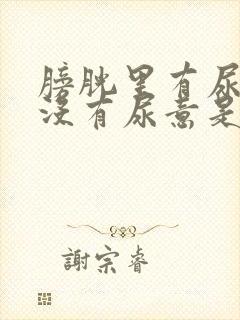 膀胱里有尿
没有尿意是
謝宗睿